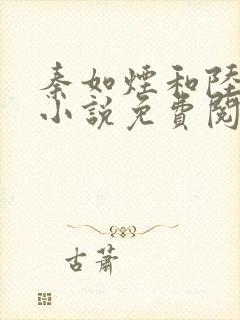 秦如煙和陸
小說免費閱
古蕭